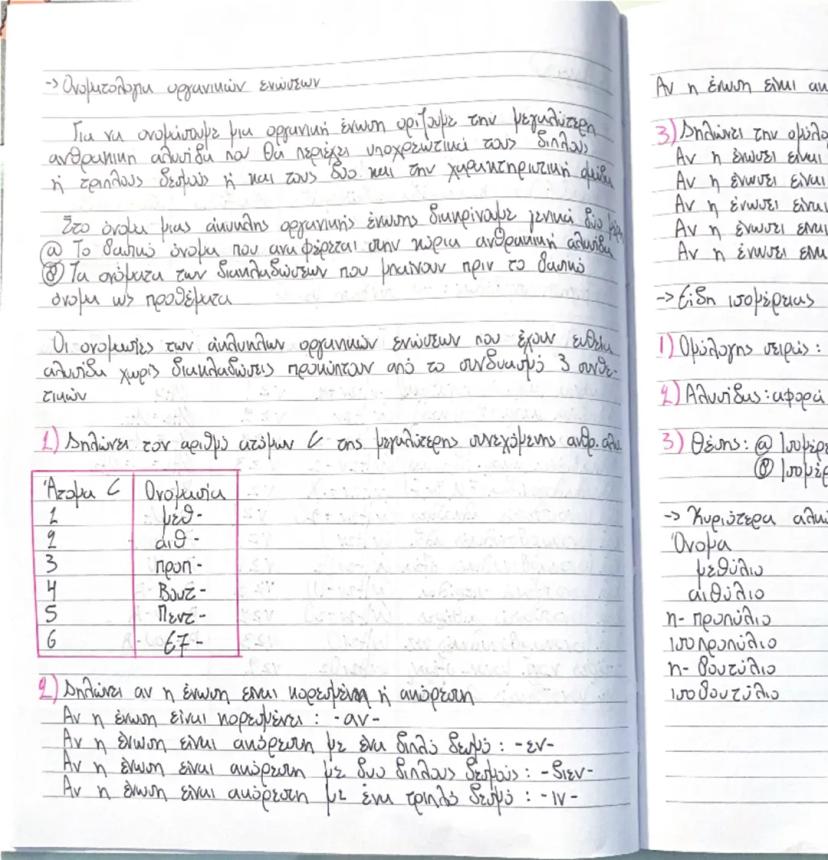 -> Ονοματολογια οργανικών ενώσεων
Για να ονομάσουμε μια οργανική ένωση ορίζουμε την μεγαλύτερη
ανθρακική αλυσίδα που θα περιέχει υποχρεωτικά τους διπλούς
ή τριπλούς δεσμούς ή και τους δύο και την χαρακτηριστική ομάδα
Στο όνομα μιας άκυκλης οργανικής ένωσης διακρίνουμε γενικά δύο μέρη
α Το βασικό όνομα που αναφέρεται στην κύρια ανθρακική αλυσίδα
β Τα ονόματα των διακλαδώσεων που μπαίνουν πριν το βασικό
όνομα ως προθέματα
Οι ονομασίες των άκυκλων οργανικών ενώσεων που έχουν ευθεία
αλυσίδα χωρίς διακλαδώσεις προκύπτουν από το συνδυασμό 3 συνθε-
τικών
1) Δηλώνει τον αριθμό ατόμων C της μεγαλύτερης συνεχόμενης ανθρ. αλυ.
Άτομα C Ονομασία
1 μεθ-
2 αιθ-
3 προπ-
4 Βουτ-
5 Πεντ-
6 εξ-
2) Δηλώνει αν η ένωση είναι κορεσμένη ή ακόρεστη
Αν η ένωση είναι κορεσμένη : -αν-
Αν η ένωση είναι ακόρεστη με ένα διπλό δεσμό : -εν-
Αν η ένωση είναι ακόρεστη με δυο διπλους δεσμούς : -διεν-
Αν η ένωση είναι ακόρεστη με ένα τριπλό δεσμό : -ιν-
Αν η ένωση είναι ακ
3) Δηλώνει την ομόλο
Αν η ένωσει είναι
Αν η ένωσει είναι
Αν η ένωσει είναι
Αν η ένωσει είναι
Αν η ένωσει είναι
-> Είδη ισομέρειας
1) Ομόλογης σειράς :
2) Αλυσίδας : αφορά
3) Θέσης : α Ισομέρε
β Ισομέρ
-> Κυριότερα αλκύ
Όνομα
μεθύλιο
αιθύλιο
n- προπύλιο
ισοπροπύλιο
n- βουτύλιο
ισοβουτύλιο